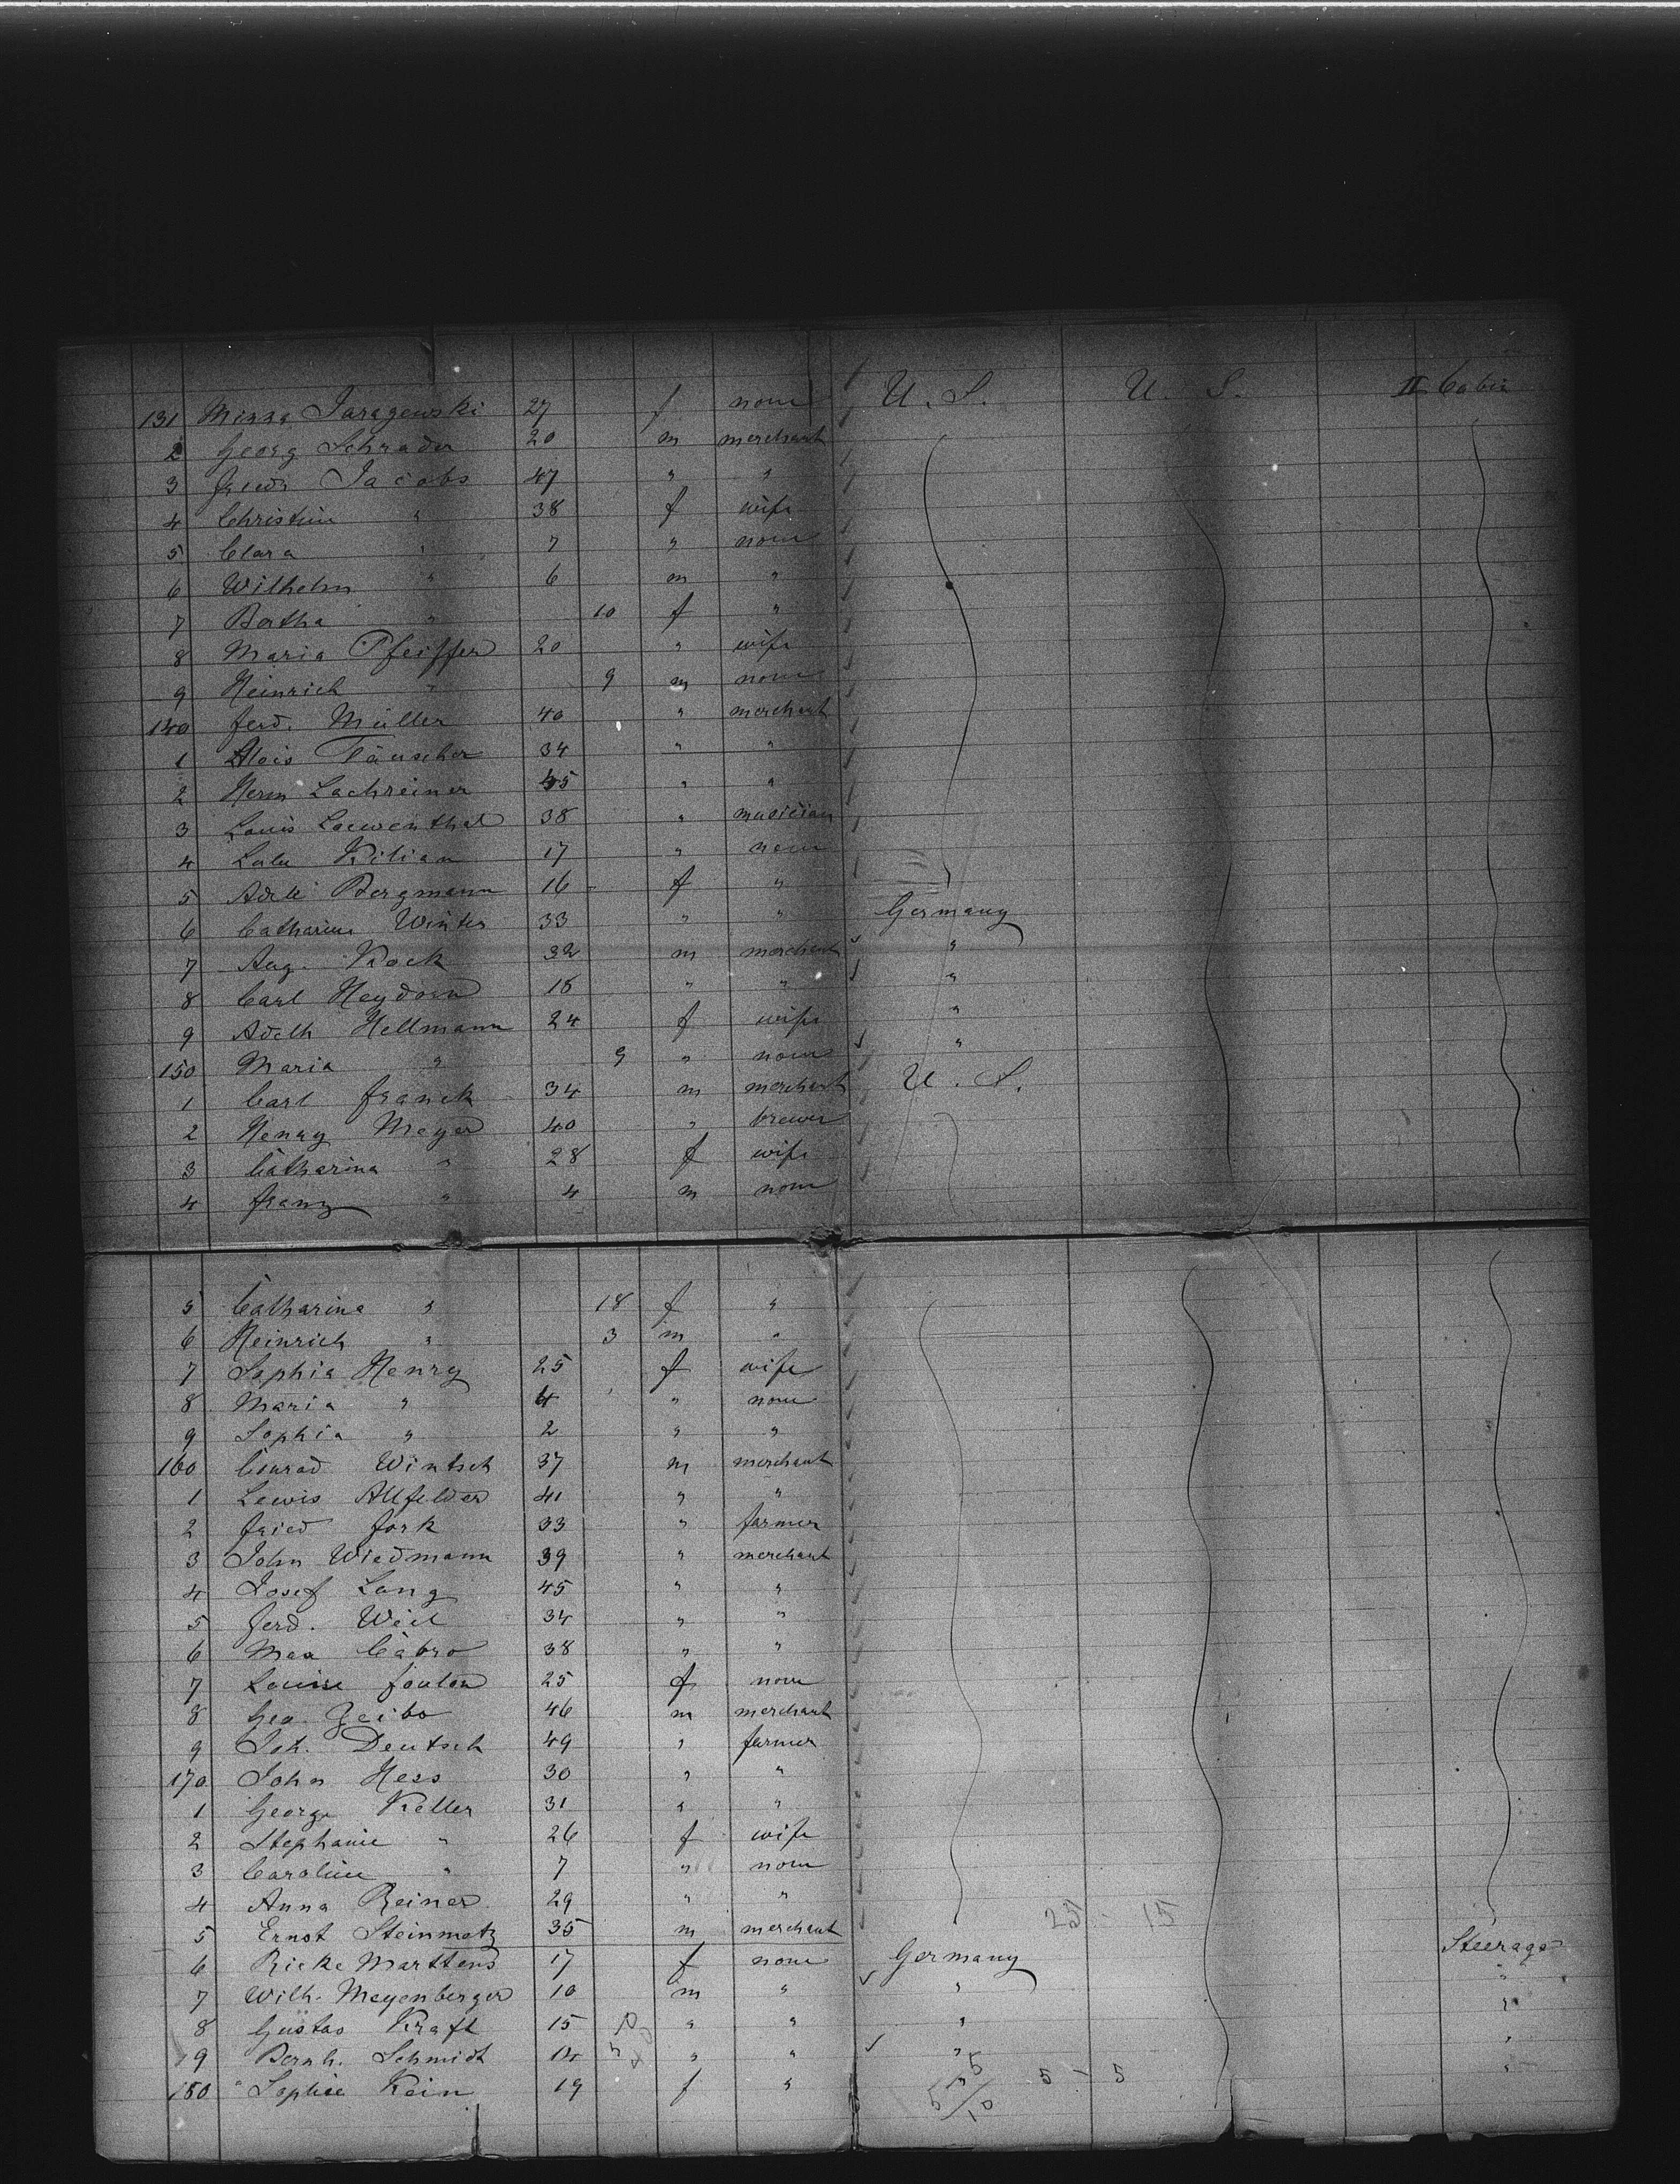 131 Minna Jaragewski 27 f none U. S. U. S. II Cabin
2 Georg Schrader 20 m merchant
3 Friedr Jacobs 47 " "
4 Christine " 38 f wife
5 Clara " 7 " none
6 Wilhelm " 6 m "
7 Bertha " 10 f "
8 Maria Pfeiffer 20 " wife
9 Heinrich " 9 m none
140 Ferd. Müller 40 " merchant
1 Alois Täuscher 34 " "
2 Herm Lachreiner 45 " "
3 Louis Loewenthal 38 " musician
4 Lulu Kilian 17 " none
5 Adele Bergmann 16 f "
6 Catharine Winter 33 " " Germany
7 Aug. Kock 32 m merchant "
8 Carl Heydorn 18 " " "
9 Adelh Hellmann 24 f wife "
150 Maria " 9 " none "
1 Carl Franck 34 m merchant U. S.
2 Henry Meyer 40 " brewer
3 Catharina " 28 f wife
4 Franz " 4 m none
5 Catharina " 18 f "
6 Heinrich " 3 m "
7 Sophia Henry 25 f wife
8 Maria " 4 " none
9 Sophia " 2 " "
160 Conrad Wintsch 37 m merchant
1 Lewis Allfelder 41 " "
2 Fried Fork 33 " farmer
3 John Wiedmann 39 " merchant
4 Josef Lang 45 " "
5 Ferd. Weil 34 " "
6 Max Cabro 38 " "
7 Louise 25 f none
8 Geo. Zeibo 46 m merchant
9 Joh. Deutsch 49 " farmer
170 John Hess 30 " "
1 George Keller 31 " "
2 Stephanie " 26 f wife
3 Caroline " 7 " none
4 Anna Reiner 29 " "
5 Ernst Steinmetz 35 m merchant 25 - 15
6 Rieke Marttens 17 f none Germany Steerage
7 Wilh. Meyenberger 10 m " " "
8 Gustav Kraft 15 " " " "
9 Bernh. Schmidt 14 " " " "
180 Sophie Kein 19 f " 5 - 5 "